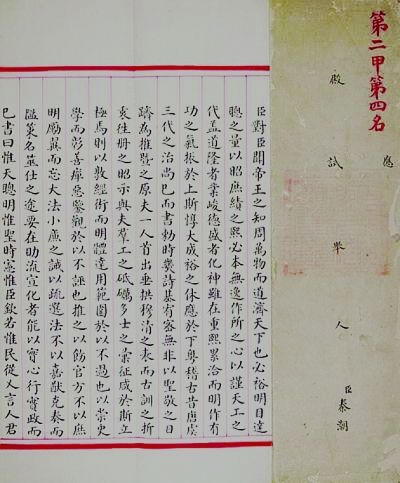 第二甲第四名
應
殿試舉人臣秦潮
臣對臣聞帝王之知周萬物而道濟天下也必裕明目達
聰之量以昭庶績之熙必本無逸作所之心以謹天工之
代盖道隆者業峻德盛者化神雖在重熙累洽而明作有
功之氣振於上斯惇大成裕之休應於下粤稽古昔唐虞
三代之治尚已而書勅時幾詩基宥宻無非以聖敬之日
躋為推暨之原夫一人首出垂拱穆清之表而古訓之折
衷往册之昭示與夫羣工之砥礪多士之彚征咸於斯立
極焉則以敦經術而明體達用範圍於以不過也以崇史
學而彰善癉惡鑒觀於以不誣也推之以飭官方不以庶
明勵翼而忘大法小亷之誡以疏選法不以嘉猷克奏而
濫策名莁仕之途要在助流宣化者能以實心行實政而
已書曰惟天聰明惟聖時憲惟臣欽若惟民從乂言人君